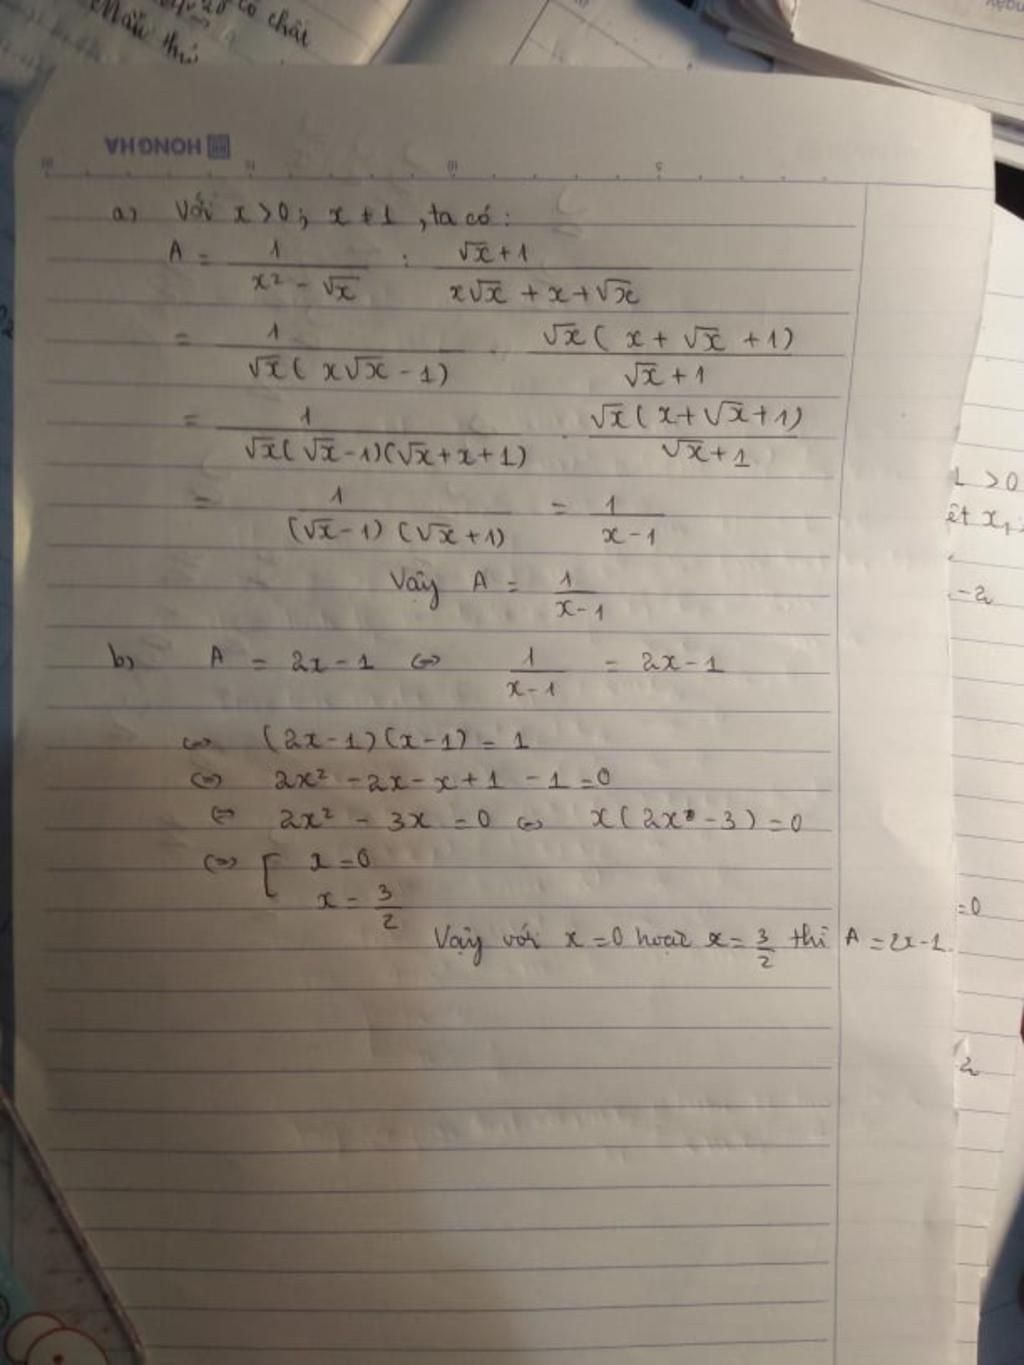 có chất
Mẫu thư
HONG HA
10
5
a) Với x > 0; x ≠ 1, ta có:
A = 1/(x² - √x) : (√x + 1)/(x√x + x + √x)
= 1/(√x(x√x - 1)) . √x(x + √x + 1)/(√x + 1)
= 1/(√x(√x - 1)(√x + x + 1)) . √x(x + √x + 1)/(√x + 1)
= 1/((√x - 1)(√x + 1)) = 1/(x - 1)
Vậy A = 1/(x - 1)
b) A = 2x - 1 ⇔ 1/(x - 1) = 2x - 1
⇔ (2x - 1)(x - 1) = 1
⇔ 2x² - 2x - x + 1 - 1 = 0
⇔ 2x² - 3x = 0 ⇔ x(2x - 3) = 0
⇔ [ x = 0
x = 3/2
Vậy với x = 0 hoặc x = 3/2 thì A = 2x - 1.
1 > 0
ết x₁
-2
= 0
2